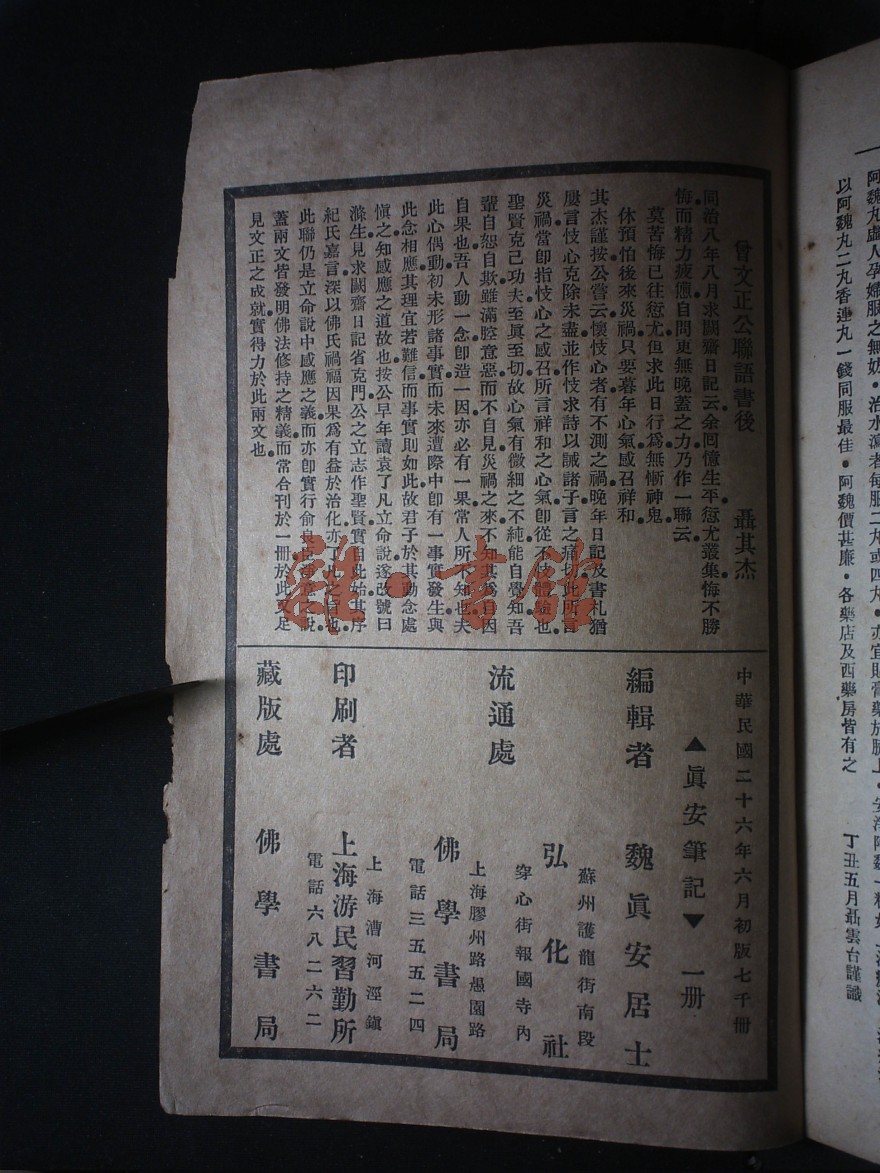 阿魏丸虛人孕婦服之無妨・治水瀉者每服二丸或四丸・亦宜貼膏藥於臍上・
以阿魏丸二丸香連丸一錢同服最佳・阿魏價甚廉・各藥店及西藥房皆有之
丁丑五月聶雲台謹識
曾文正公聯語書後　聶其杰
同治八年八月求闕齋日記云余回憶生平愆尤叢集悔不勝
悔而精力疲憊自問更無晚蓋之力乃作一聯云
莫苦悔已往愆尤但求此日行為無慚神鬼
休預怕後來災禍只要暮年心氣感召祥和
其杰謹按公嘗云懷忮心者有不測之禍晚年日記及書札猶
屢言忮心克除未盡並作忮求詩以誡諸子言之痛切此所言
災禍當卽指忮心之感召所言祥和之心氣卽從不忮體驗也
聖賢克己功夫至眞至切故心氣有微細之不純能自覺知吾
輩自恕自欺雖滿腔意惡而不自見災禍之來不知其爲自因
自果也吾人動一念卽造一因亦必有一果常人所不知也夫
此心偶動初未形諸事實而未來遭際中卽有一事實發生與
此念相應其理宜若難信而事實則如此故君子於其動念處
愼之知感應之道故也按公早年讀袁了凡立命說遂改號曰
滌生見求闕齋日記省克門公之立志作聖賢實自此始其序
紀氏嘉言深以佛氏禍福因果爲有益於治化亦了凡之旨也
此聯仍是立命說中感應之義而亦卽實行俞良臣之說
蓋兩文皆發明佛法修持之精義而常合刊於一冊於此又足
見文正之成就實得力於此兩文也
中華民國二十六年六月初版七千冊
▲眞安筆記▼　一册
編輯者　魏眞安居士
流通處
蘇州護龍街南段
穿心街報國寺內
弘化社
上海膠州路愚園路
佛學書局
電話三五五二四
印刷者
上海漕河涇鎮
上海游民習勤所
電話六八二六二
藏版處　佛學書局
雜・書館